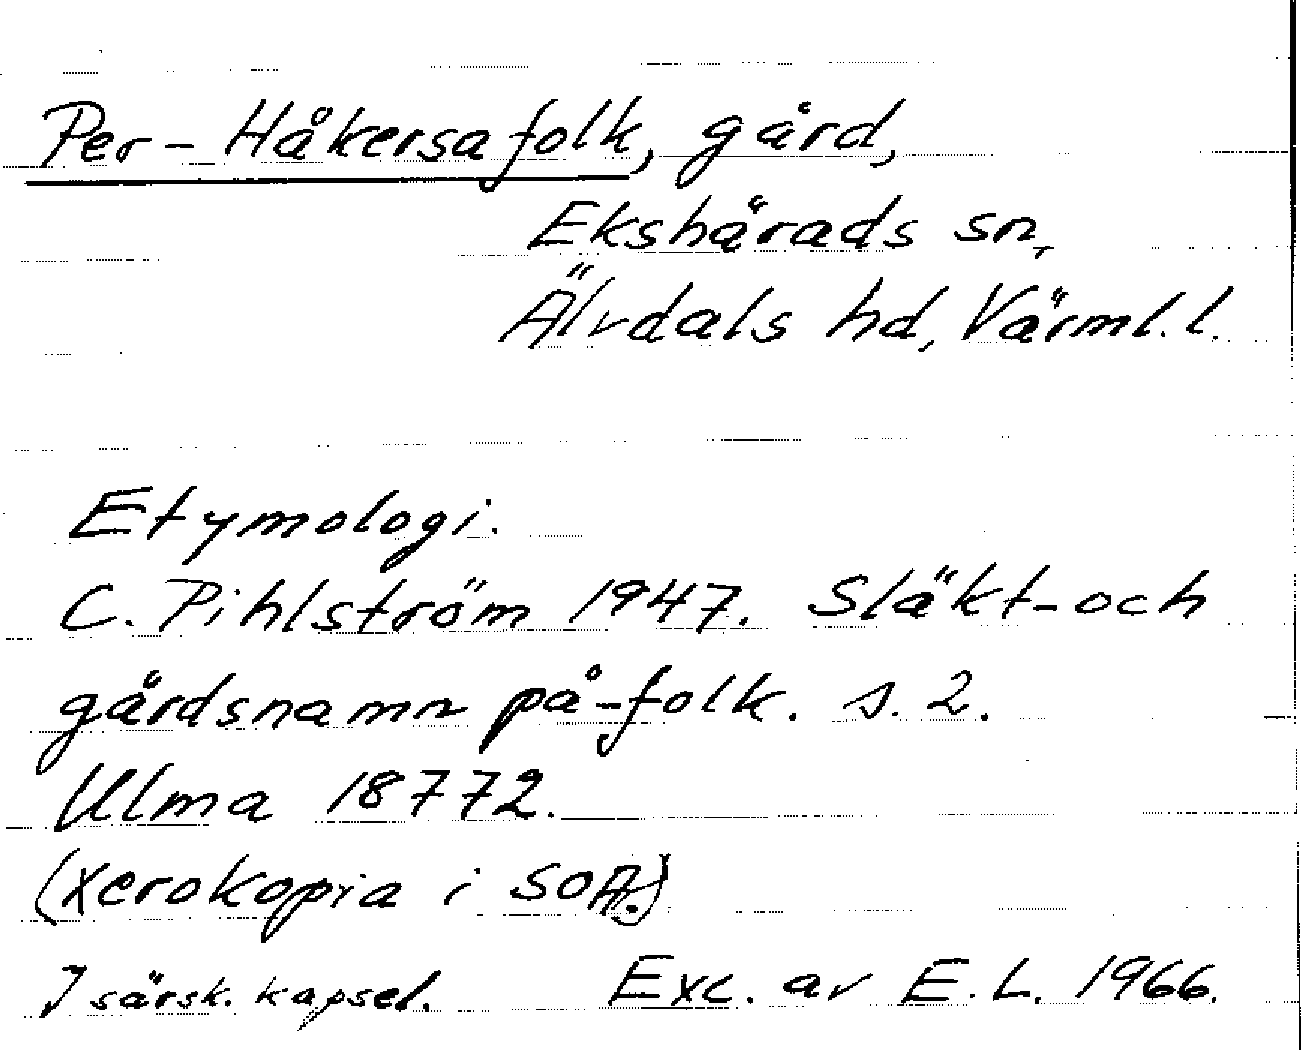 Per-Håkersafolk, gård,
Ekshärads sn,
Älvdals hd, Värml. l.
Etymologi.
C. Pihlström 1947. Släkt- och
gårdsnamn på -folk. s. 2.
Ulma 18772.
(Xerokopia i SOA.)
I särsk. kapsel. Exc. av E. L. 1966.